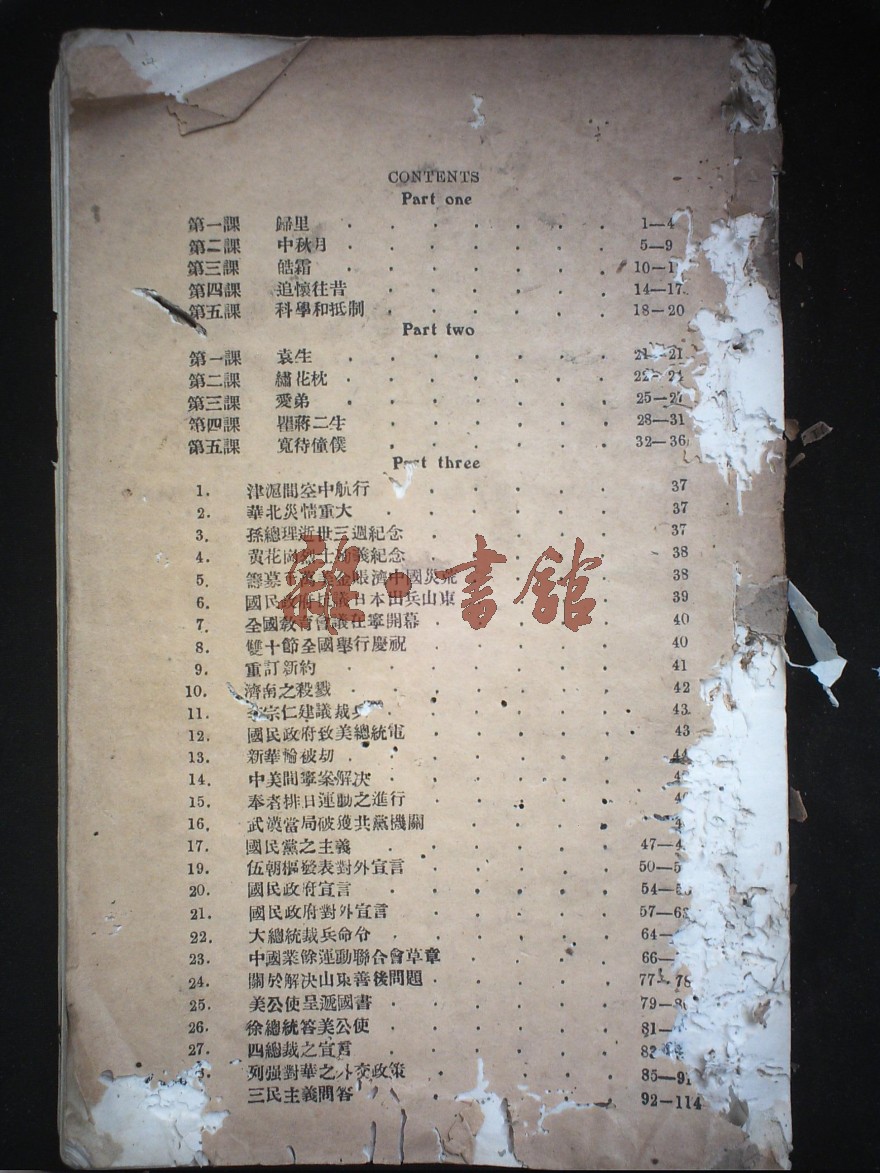 CONTENTS
Part one
第一課 歸里 1—4
第二課 中秋月 5—9
第三課 皓霜 10—1
第四課 追懷往昔 14—17
第五課 科學和抵制 18—20
Part two
第一課 袁生 21—21
第二課 繡花枕 22—24
第三課 愛弟 25—27
第四課 瞿蔣二生 28—31
第五課 寬待僮僕 32—36
Part three
1. 津滬間空中航行 37
2. 華北災情重大 37
3. 孫總理逝世三週紀念 37
4. 黃花崗烈士 義紀念 38
5. 籌募 美金賑濟中國災荒 38
6. 國民政府抗議日本出兵山東 39
7. 全國教育會議在寧開幕 40
8. 雙十節全國舉行慶祝 40
9. 重訂新約 41
10. 濟南之殺戮 42
11. 李宗仁建議裁兵 43
12. 國民政府致美總統電 43
13. 新華輪被劫 44
14. 中美間寧案解决 4
15. 奉省排日運動之進行 4
16. 武漢當局破獲共黨機關
17. 國民黨之主義 47—4
19. 伍朝樞發表對外宣言 50—5
20. 國民政府宣言 54—5
21. 國民政府對外宣言 57—63
22. 大總統裁兵命令 64—
23. 中國業餘運動聯合會草章 66—
24. 關於解决山東善後問題 77—78
25. 美公使呈遞國書 79—80
26. 徐總統答美公使 81—
27. 四總裁之宣言 82
8. 列强對華之外交政策 85—91
三民主義問答 92—114
雜·書館